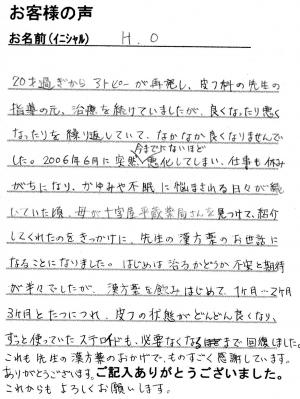 お客様の声
お名前(イニシャル) H.O
20才過ぎからアトピーが再発し、皮フ科の先生の
指導の元、治療を続けていましたが、良くなったり悪く
なったりを繰り返していて、なかなか良くなりませんで
した。2006年6月に突然今までにないほど悪化してしまい、仕事も休み
がちになり、かゆみや不眠に悩まされる日々が続
いていた頃、母が十字屋平蔵薬局さんを見つけて、紹介
してくれたのをきっかけに、先生の漢方薬のお世話に
なることになりました。はじめは治るかどうか不安と期待
が半々でしたが、漢方薬を飲みはじめて、1ヶ月…2ヶ月
3ヶ月とたつにつれ、皮フの状態がどんどん良くなり、
ずっと使っていたステロイドも、必要なくなるまで回復しました。
これも先生の漢方薬のおかげで、ものすごく感謝しています。
ありがとうございます。ご記入ありがとうございました。
これからもよろしくお願いします。